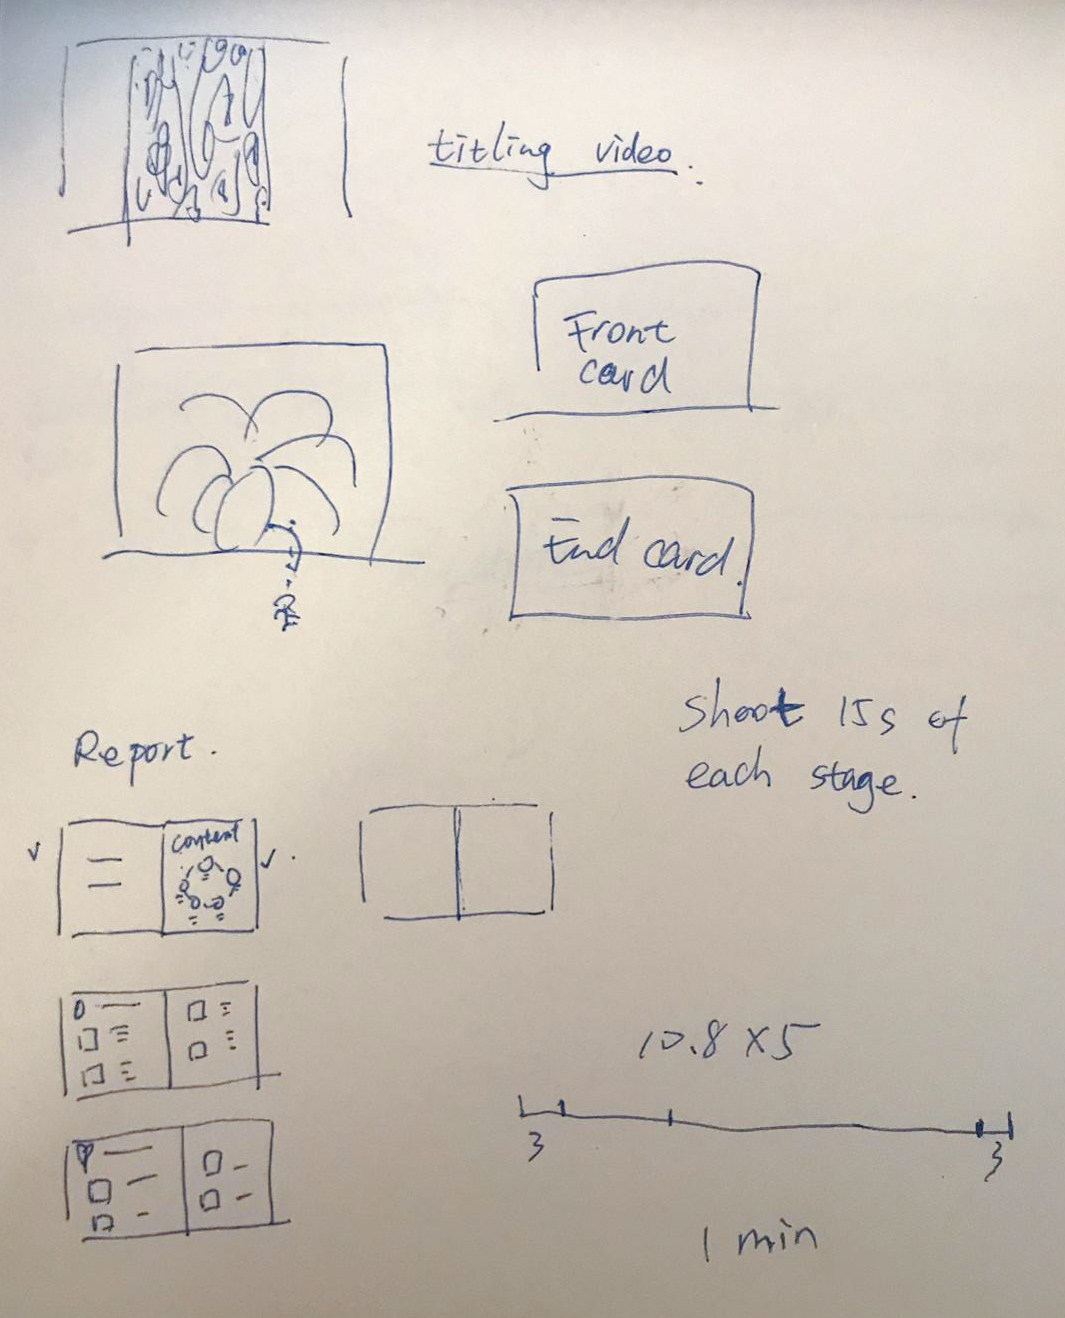 titling video.
Front
card
End card.
Shoot 15s of
each stage.
Report.
content
10.8 x 5
3
3
1 min